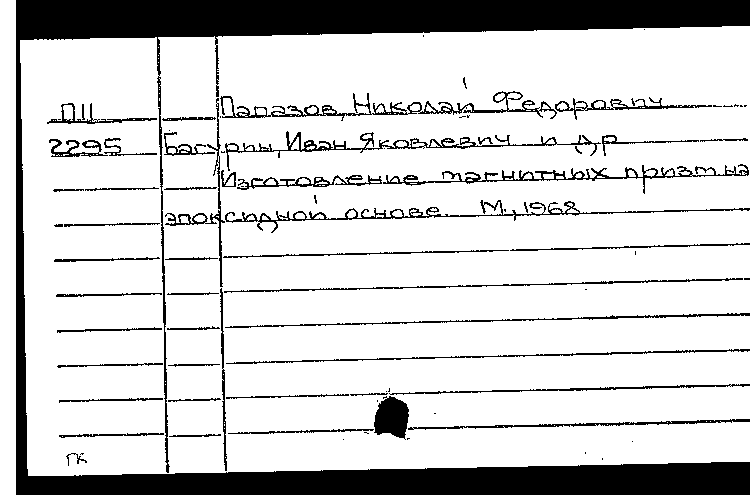 П11 Папазов, Николай Федорович
2295 Иван Яковлевич и др
Изготовление магнитных призм на
эпоксидной основе. М., 1968
ГК